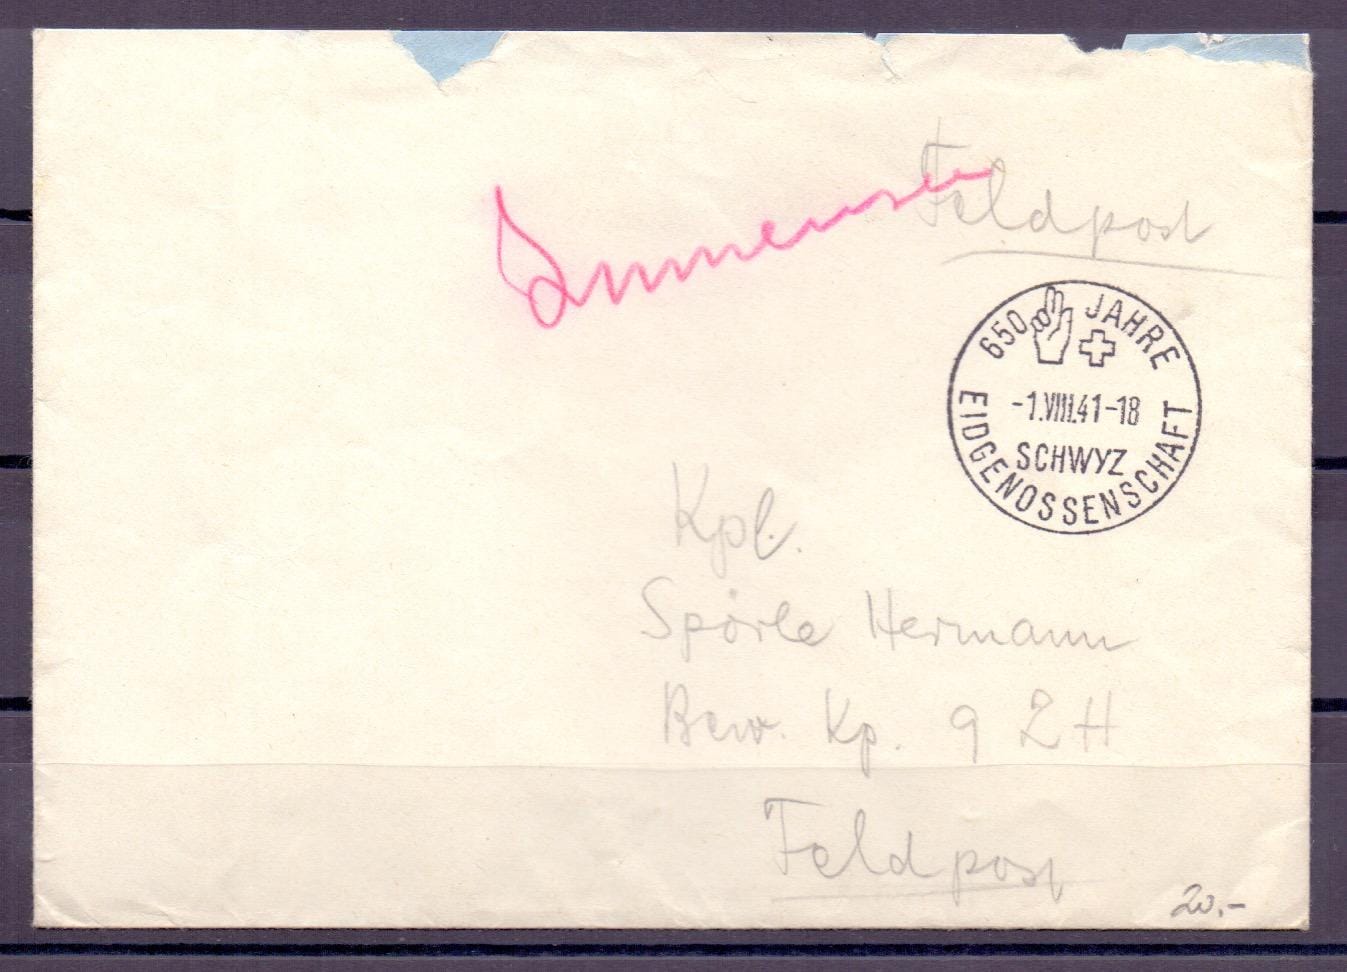 Feldpost
650 JAHRE
-1.VIII.41-18
SCHWYZ
EIDGENOSSENSCHAFT
Kpl.
Spörle Hermann
Bew. Kp. 9 ZH
Feldpost
20,-